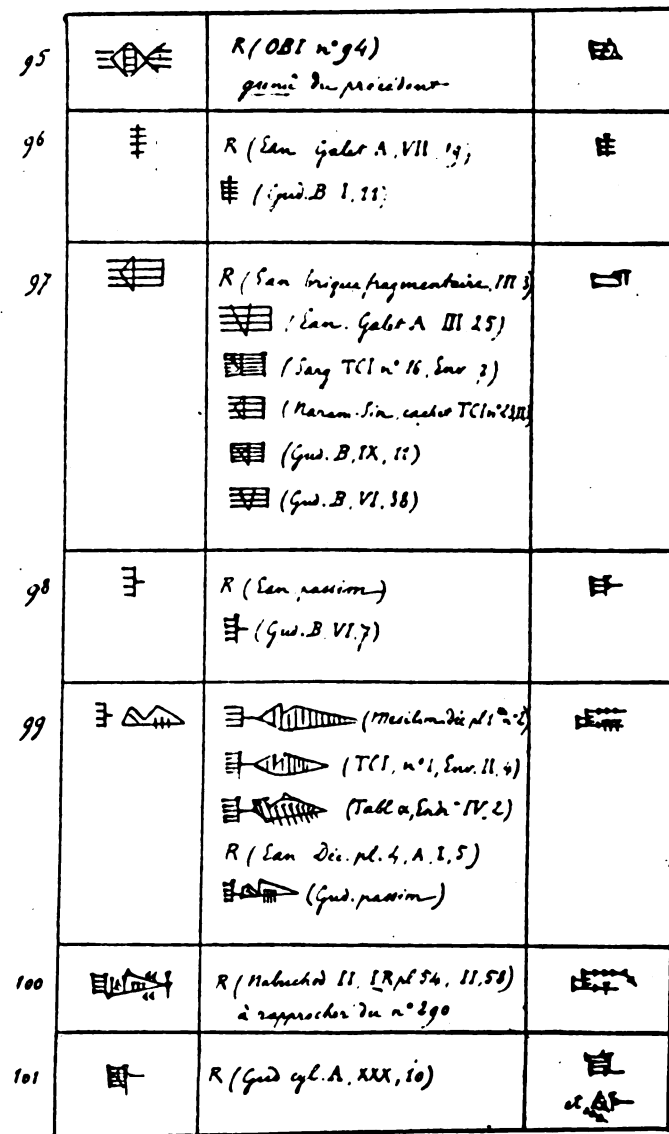 95 R (OBI n° 94)
gunû du précédent
96 R (Ean Galet A, VII
(Gud. B I, 11)
97 R (Ean brique fragmentaire, III 3)
(Ean. Galet A III 25)
(Sarg TCI n° 16, Env
(Naram-Sin, cachet TCI n°
(Gud. B, IX, 12)
(Gud. B, VI, 38)
98 R (Ean passim)
(Gud. B. VI, 7)
99 (Mesilim Déc pl 1
(TCI, n° 1, Env. II, 4)
(Tabl α, IV, 2)
R (Ean Déc. pl. 4, A, I, 5)
(Gud. passim)
100 R (Nabuchod II, IR pl 54, II, 58)
à rapprocher du n° 290
101 R (Gud cyl. A, XXX, 10)
et